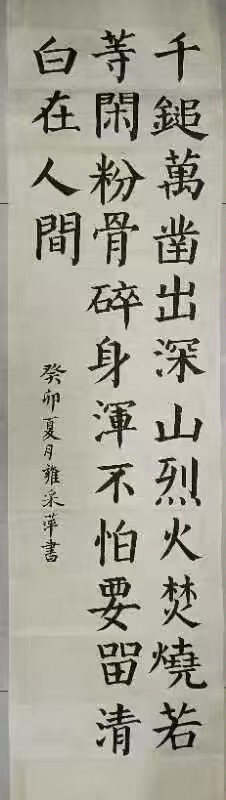 千鎚萬凿出深山烈火焚燒若
等閑粉骨碎身渾不怕要留清
白在人間
癸卯夏月雍采萍書